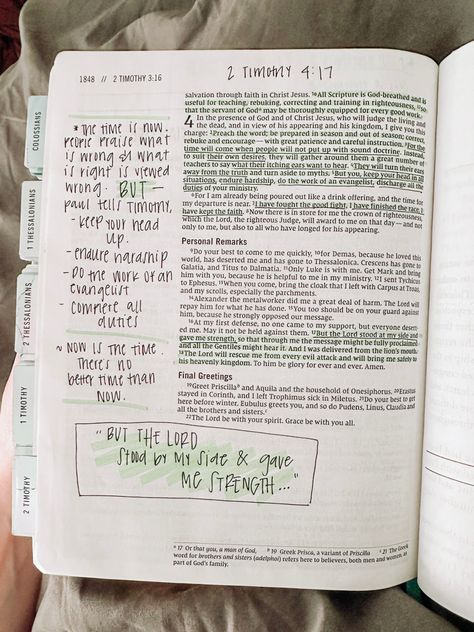 1848 // 2 TIMOTHY 3:16
2 TIMOTHY 4:17
COLOSSIANS
1 THESSALONIANS
2 THESSALONIANS
1 TIMOTHY
2 TIMOTHY
* THE TIME IS NOW.
PEOPLE PRAISE WHAT
IS WRONG & WHAT
IS RIGHT IS VIEWED
WRONG. BUT -
PAUL TELLS TIMOTHY,
- KEEP YOUR HEAD
UP.
- ENDURE HARDSHIP
- DO THE WORK OF AN
EVANGELIST
- COMPLETE ALL
DUTIES
~ NOW IS THE TIME.
THERE'S NO
BETTER TIME THAN
NOW.
salvation through faith in Christ Jesus. 16All Scripture is God-breathed and is
useful for teaching, rebuking, correcting and training in righteousness, 17so
that the servant of God a may be thoroughly equipped for every good work.
4 In the presence of God and of Christ Jesus, who will judge the living and
the dead, and in view of his appearing and his kingdom, I give you this
charge: 2Preach the word; be prepared in season and out of season; correct,
rebuke and encourage — with great patience and careful instruction. 3For the
time will come when people will not put up with sound doctrine. Instead,
to suit their own desires, they will gather around them a great number of
teachers to say what their itching ears want to hear. 4They will turn their ears
away from the truth and turn aside to myths. 5But you, keep your head in all
situations, endure hardship, do the work of an evangelist, discharge all the
duties of your ministry.
6For I am already being poured out like a drink offering, and the time for
my departure is near. 7I have fought the good fight, I have finished the race, I
have kept the faith. 8Now there is store for me the crown of righteousness,
which the Lord, the righteous Judge, will award to me on that day — and not
only to me, but also to all who have longed for his appearing.
Personal Remarks
9Do your best to come to me quickly, 10for Demas, because he loved this
world, has deserted me and has gone to Thessalonica. Crescens has gone to
Galatia, and Titus to Dalmatia. 11Only Luke is with me. Get Mark and bring
him with you, because he is helpful to me in my ministry. 12I sent Tychicus
to Ephesus. 13When you come, bring the cloak that I left with Carpus at Troas,
and my scrolls, especially the parchments.
14Alexander the metalworker did me a great deal of harm. The Lord will
repay him for what he has done. 15You too should be on your guard against
him, because he strongly opposed our message.
16At my first defense, no one came to my support, but everyone desert-
ed me. May it not be held against them. 17But the Lord stood at my side and
gave me strength, so that through me the message might be fully proclaimed
and all the Gentiles might hear it. And I was delivered from the lion's mouth.
18The Lord will rescue me from every evil attack and will bring me safely to
his heavenly kingdom. To him be glory for ever and ever. Amen.
Final Greetings
19Greet Priscilla b and Aquila and the household of Onesiphorus. 20Erastus
stayed in Corinth, and I left Trophimus sick in Miletus. 21Do your best to get
here before winter. Eubulus greets you, and so do Pudens, Linus, Claudia and
all the brothers and sisters. c
22The Lord be with your spirit. Grace be with you all.
"BUT THE LORD
STOOD BY MY SIDE & GAVE
ME STRENGTH..."
a 17 Or that you, a man of God, b 19 Greek Prisca, a variant of Priscilla c 21 The Greek
word for brothers and sisters (adelphoi) refers here to believers, both men and women, as
part of God's family.